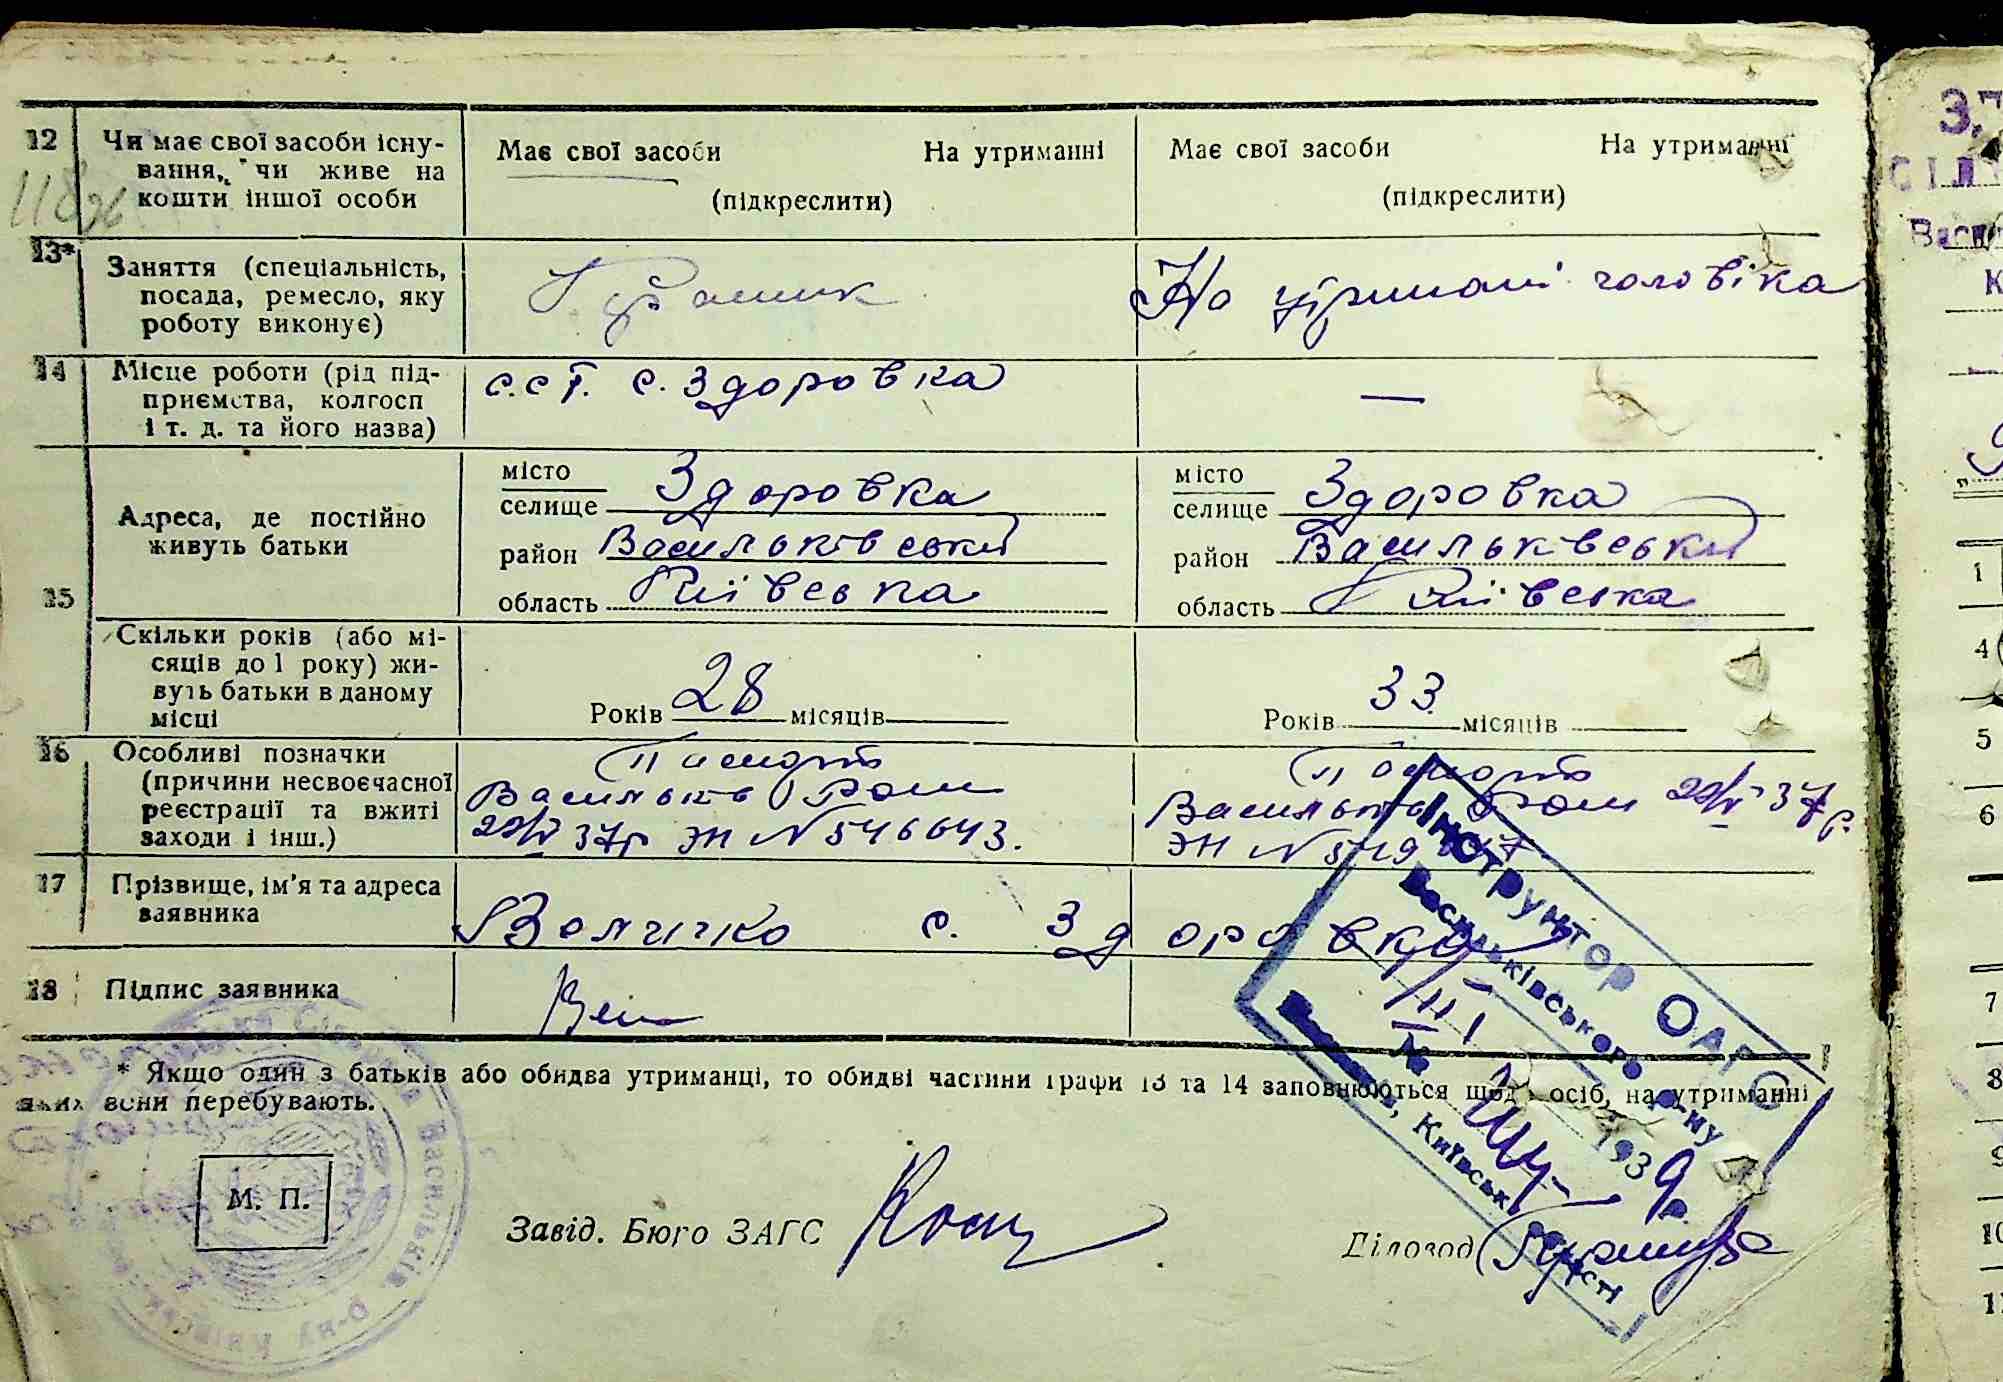 12 Чи має свої засоби існу-
вання, чи живе на
кошти іншої особи
Має свої засоби На утриманні
(підкреслити)
Має свої засоби На утриманні
(підкреслити)
13* Заняття (спеціальність,
посада, ремесло, яку
роботу виконує)
На утримані чоловіка
14 Місце роботи (рід під-
приємства, колгосп
і т. д. та його назва)
с.ст. с. Здоровка
—
15 Адреса, де постійно
живуть батьки
місто
селище Здоровка
район Васильківський
область Київська
місто
селище Здоровка
район Васильківський
область Київська
Скільки років (або мі-
сяців до 1 року) жи-
вуть батьки в даному
місці
Років 28 місяців
Років 33 місяців
16 Особливі позначки
(причини несвоєчасної
реєстрації та вжиті
заходи і інш.)
Паспорт
Васильків
37р ЭН N 546643.
Паспорт
37р.
ЭН N
17 Прізвище, ім'я та адреса
заявника
Величко с. Здоровка
18 Підпис заявника
* Якщо один з батьків або обидва утриманці, то обидві частини графи 13 та 14 заповнюються щодо осіб, на утриманні
яких вони перебувають.
М. П.
Завід. Бюро ЗАГС
Діловод
Інструктор ОАГС
Васильківського р-ну
1939 р.